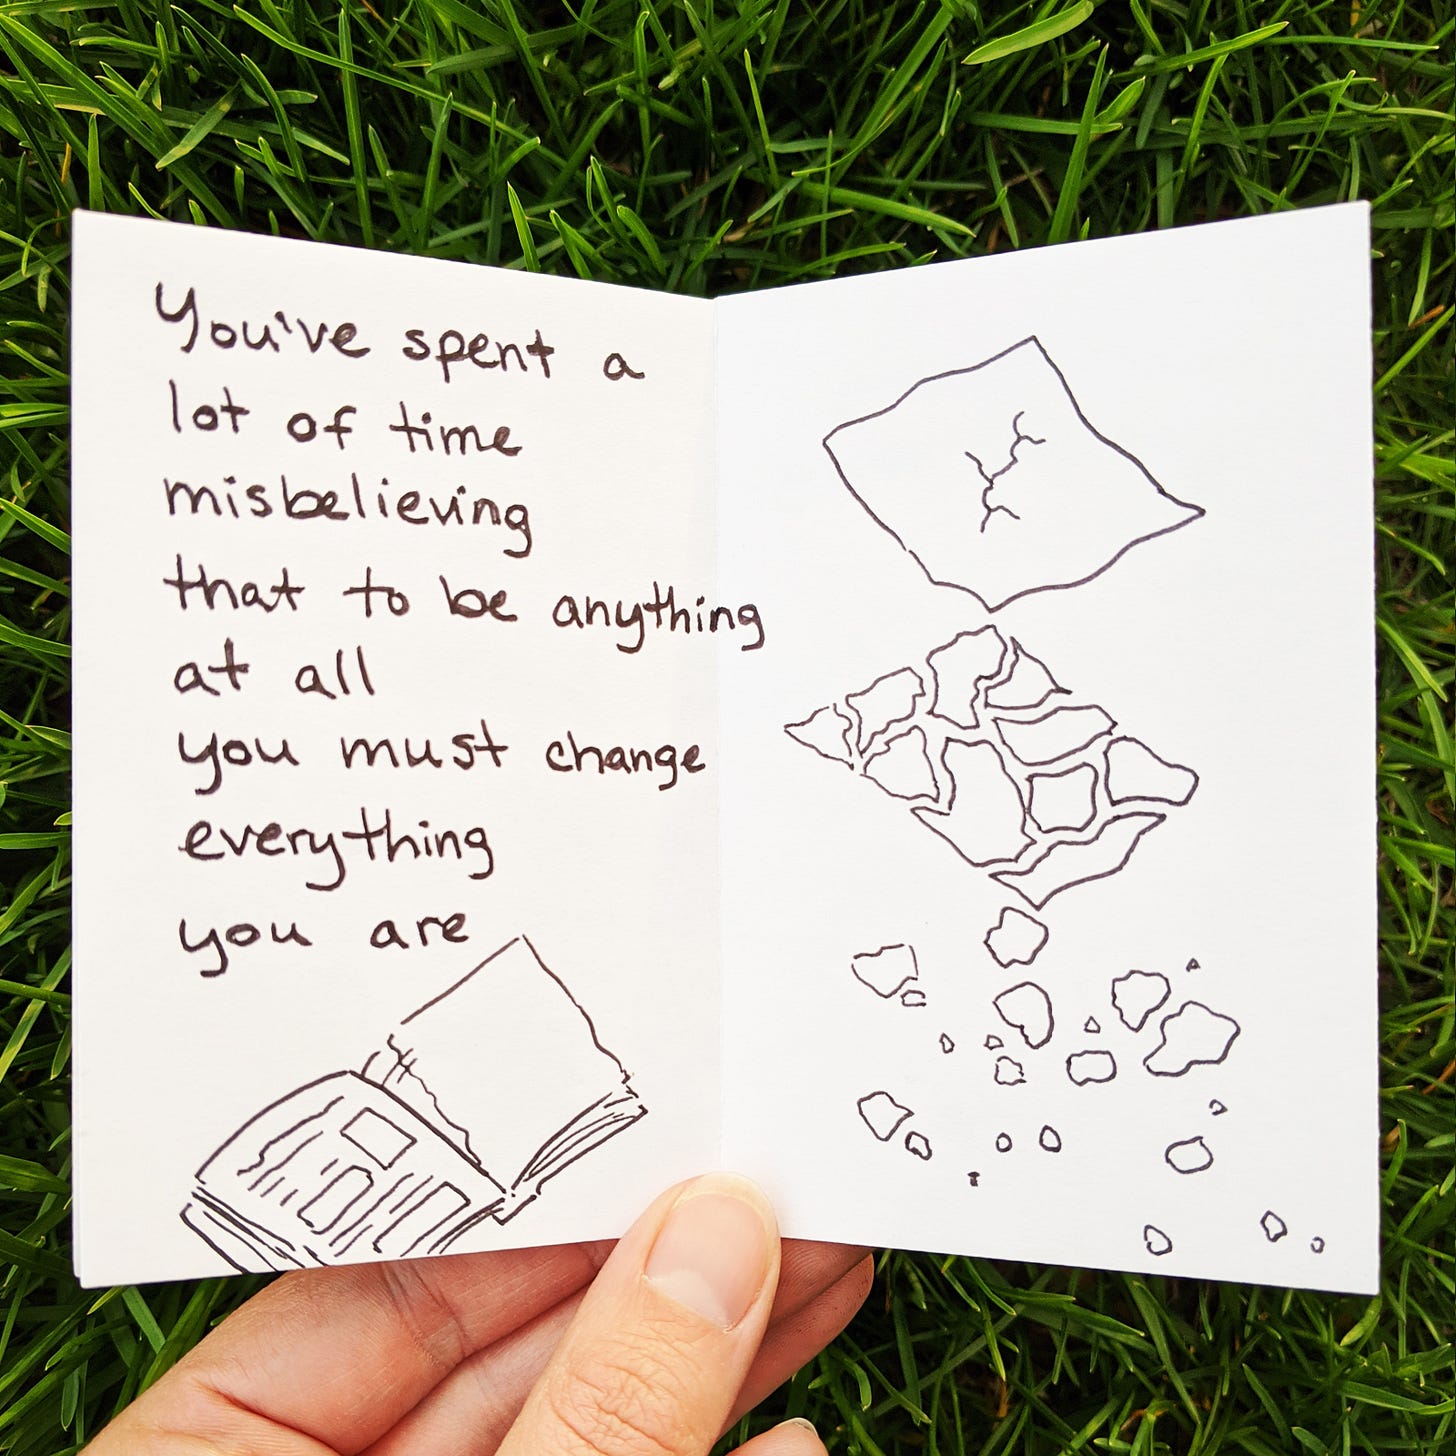 You've spent a
lot of time
misbelieving
that to be anything
at all
you must change
everything
you are